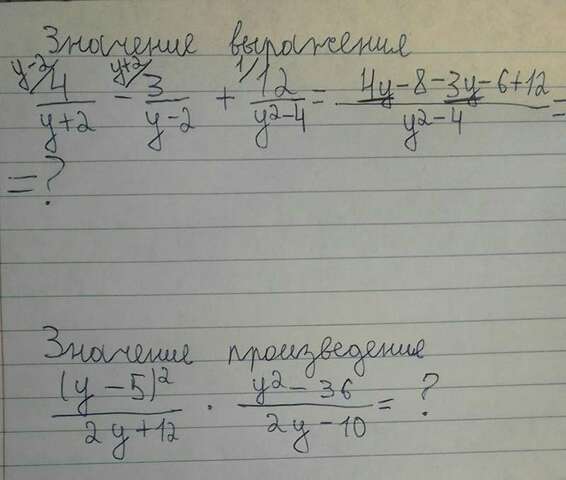 Значение выражения
y-2/ 4/(y+2) - y+2/ 3/(y-2) + 1/ 12/(y²-4) = (4y-8-3y-6+12)/(y²-4) =
= ?
Значение произведения
(y-5)²/(2y+12) · (y²-36)/(2y-10) = ?